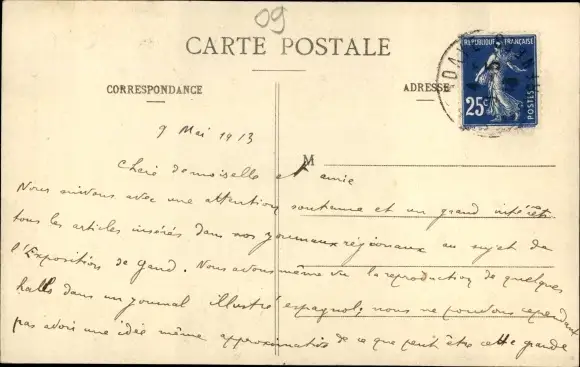 09
CARTE POSTALE
REPUBLIQUE FRANÇAISE
25c
POSTES
CORRESPONDANCE
ADRESSE
9 Mai 1913
M
Chère demoiselle et amie
Nous suivons avec une attention soutenue et un grand intérêt
tous les articles insérés dans nos journaux régionaux au sujet de
l'Exposition de Gand. Nous avons même vu la reproduction de quelques
halls dans un journal illustré espagnol; nous ne pouvons cependant
pas avoir une idée même approximative de ce que peut être cette grande